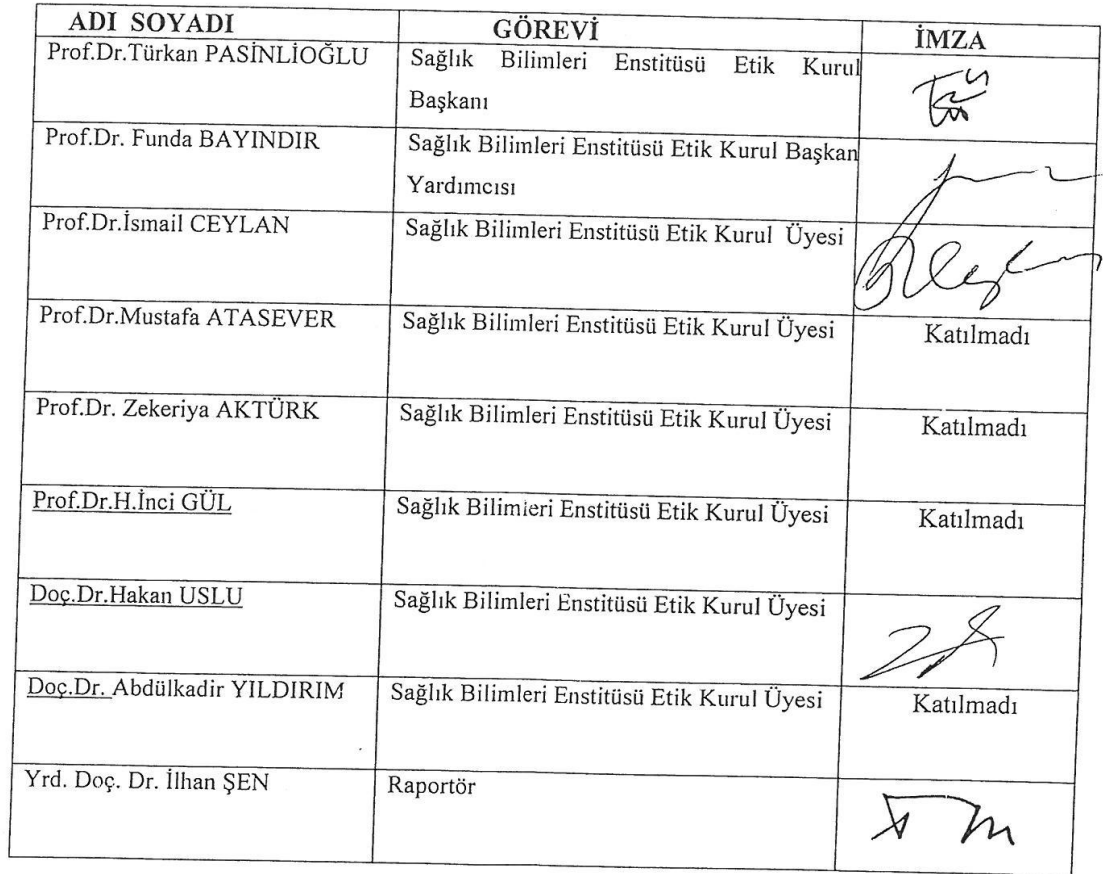 ADI SOYADI GÖREVİ İMZA
Prof.Dr.Türkan PASİNLİOĞLU Sağlık Bilimleri Enstitüsü Etik Kurul
Başkanı
Prof.Dr. Funda BAYINDIR Sağlık Bilimleri Enstitüsü Etik Kurul Başkan
Yardımcısı
Prof.Dr.İsmail CEYLAN Sağlık Bilimleri Enstitüsü Etik Kurul Üyesi
Prof.Dr.Mustafa ATASEVER Sağlık Bilimleri Enstitüsü Etik Kurul Üyesi Katılmadı
Prof.Dr. Zekeriya AKTÜRK Sağlık Bilimleri Enstitüsü Etik Kurul Üyesi Katılmadı
Prof.Dr.H.İnci GÜL Sağlık Bilimleri Enstitüsü Etik Kurul Üyesi Katılmadı
Doç.Dr.Hakan USLU Sağlık Bilimleri Enstitüsü Etik Kurul Üyesi
Doç.Dr. Abdülkadir YILDIRIM Sağlık Bilimleri Enstitüsü Etik Kurul Üyesi Katılmadı
Yrd. Doç. Dr. İlhan ŞEN Raportör